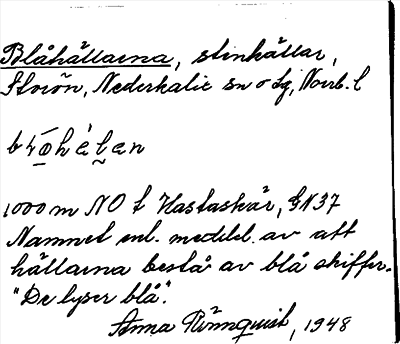 Blåhällarna, stenhällar,
Storön, Nederkalix sn o tg, Norrb. l
1000 m NO t Hastaskär, GK37
Namnet enl. meddel. av att
hällarna bestå av blå skiffer.
"De lyser blå".
Anna Rönnquist, 1948